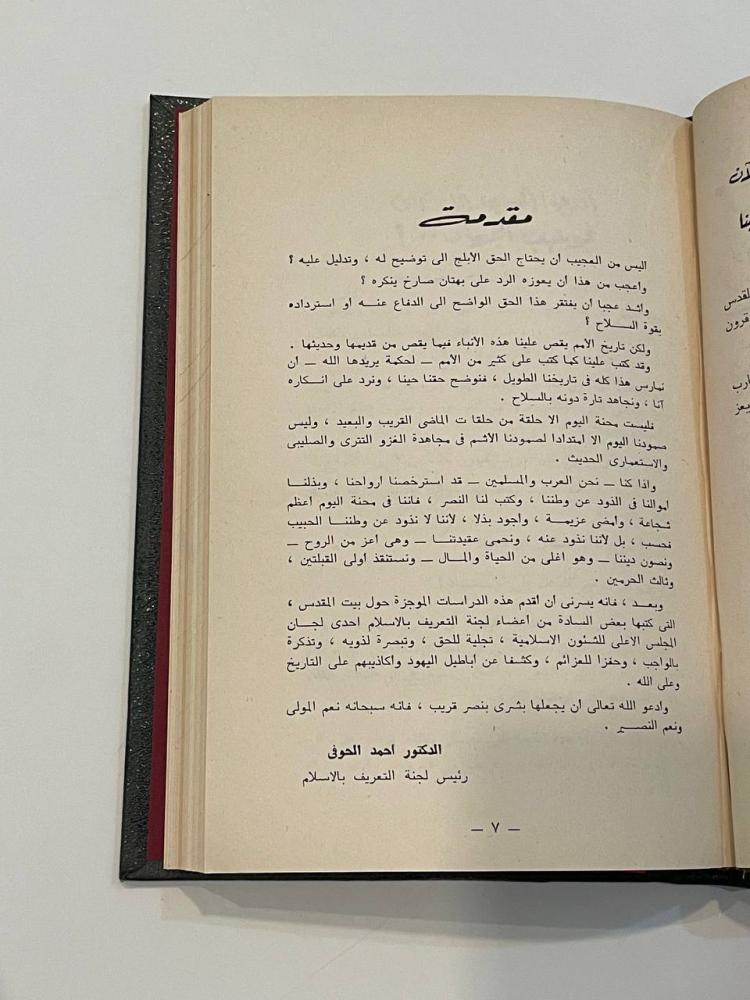 مقدمة
اليس من العجيب ان يحتاج الحق الأبلج الى توضيح له ، وتدليل عليه ؟
واعجب من هذا ان يعوزه الرد على بهتان صارخ ينكره ؟
واشد عجبا ان يفتقر هذا الحق الواضح الى الدفاع عنه او استرداده
بقوة السلاح ؟
ولكن تاريخ الأمم يقص علينا هذه الأنباء فيما يقص من قديمها وحديثها .
وقد كتب علينا كما كتب على كثير من الأمم — لحكمة يريدها الله — أن
نمارس هذا كله فى تاريخنا الطويل ، فنوضح حقنا حينا ، ونرد على انكاره
آنا ، ونجاهد تارة دونه بالسلاح .
فليست محنة اليوم الا حلقة من حلقات الماضى القريب والبعيد ، وليس
صمودنا اليوم الا امتدادا لصمودنا الأشم فى مجاهدة الغزو التترى والصليبى
والاستعمارى الحديث .
واذا كنا — نحن العرب والمسلمين — قد استرخصنا ارواحنا ، وبذلنا
اموالنا فى الذود عن وطننا ، وكتب لنا النصر ، فاننا فى محنة اليوم اعظم
شجاعة ، وامضى عزيمة ، واجود بذلا ، لأننا لا نذود عن وطننا الحبيب
فحسب ، بل لأننا نذود عنه ، ونحمى عقيدتنا — وهى اعز من الروح —
ونصون ديننا — وهو اغلى من الحياة والمال — ونستنقذ أولى القبلتين ،
وثالث الحرمين .
وبعد ، فانه يسرنى ان اقدم هذه الدراسات الموجزة حول بيت المقدس ،
التى كتبها بعض السادة من أعضاء لجنة التعريف بالاسلام احدى لجان
المجلس الاعلى للشئون الاسلامية ، تجلية للحق ، وتبصرة لذويه ، وتذكرة
بالواجب ، وحفزا للعزائم ، وكشفا عن اباطيل اليهود واكاذيبهم على التاريخ
وعلى الله .
وادعو الله تعالى ان يجعلها بشرى بنصر قريب ، فانه سبحانه نعم المولى
ونعم النصير .
الدكتور احمد الحوفى
رئيس لجنة التعريف بالاسلام
— ٧ —
القدس
قرون